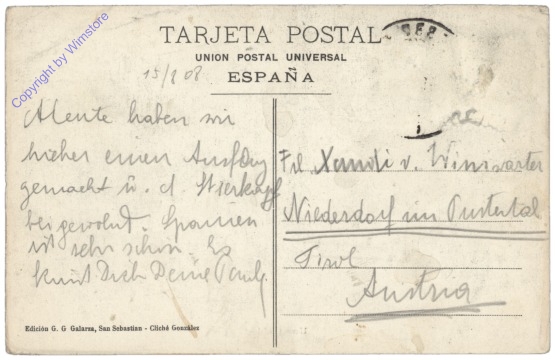 Copyright by Wimstore
TARJETA POSTAL
UNION POSTAL UNIVERSAL
ESPAÑA
15/2 08
Heute haben wir
hieher einen Ausflug
gemacht u. d. Stierkampf
beigewohnt. Spanien
ist sehr schön. Es
küsst Dich Deine
Frl. Xandi v. Winiwarter
Niederdorf im Pustertal
Tirol
Austria
Edición G. G Galarza, San Sebastian - Cliché González